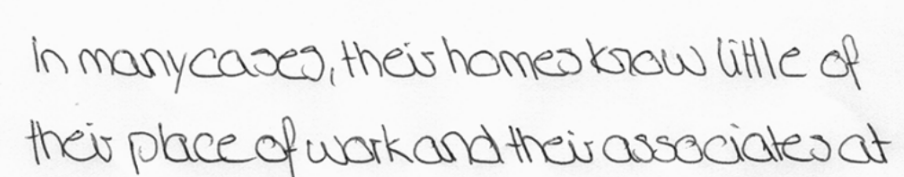 In many cases, their homes know little of
their place of work and their associates at